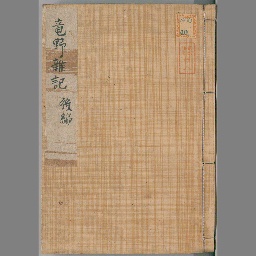 竜野雜記
後編